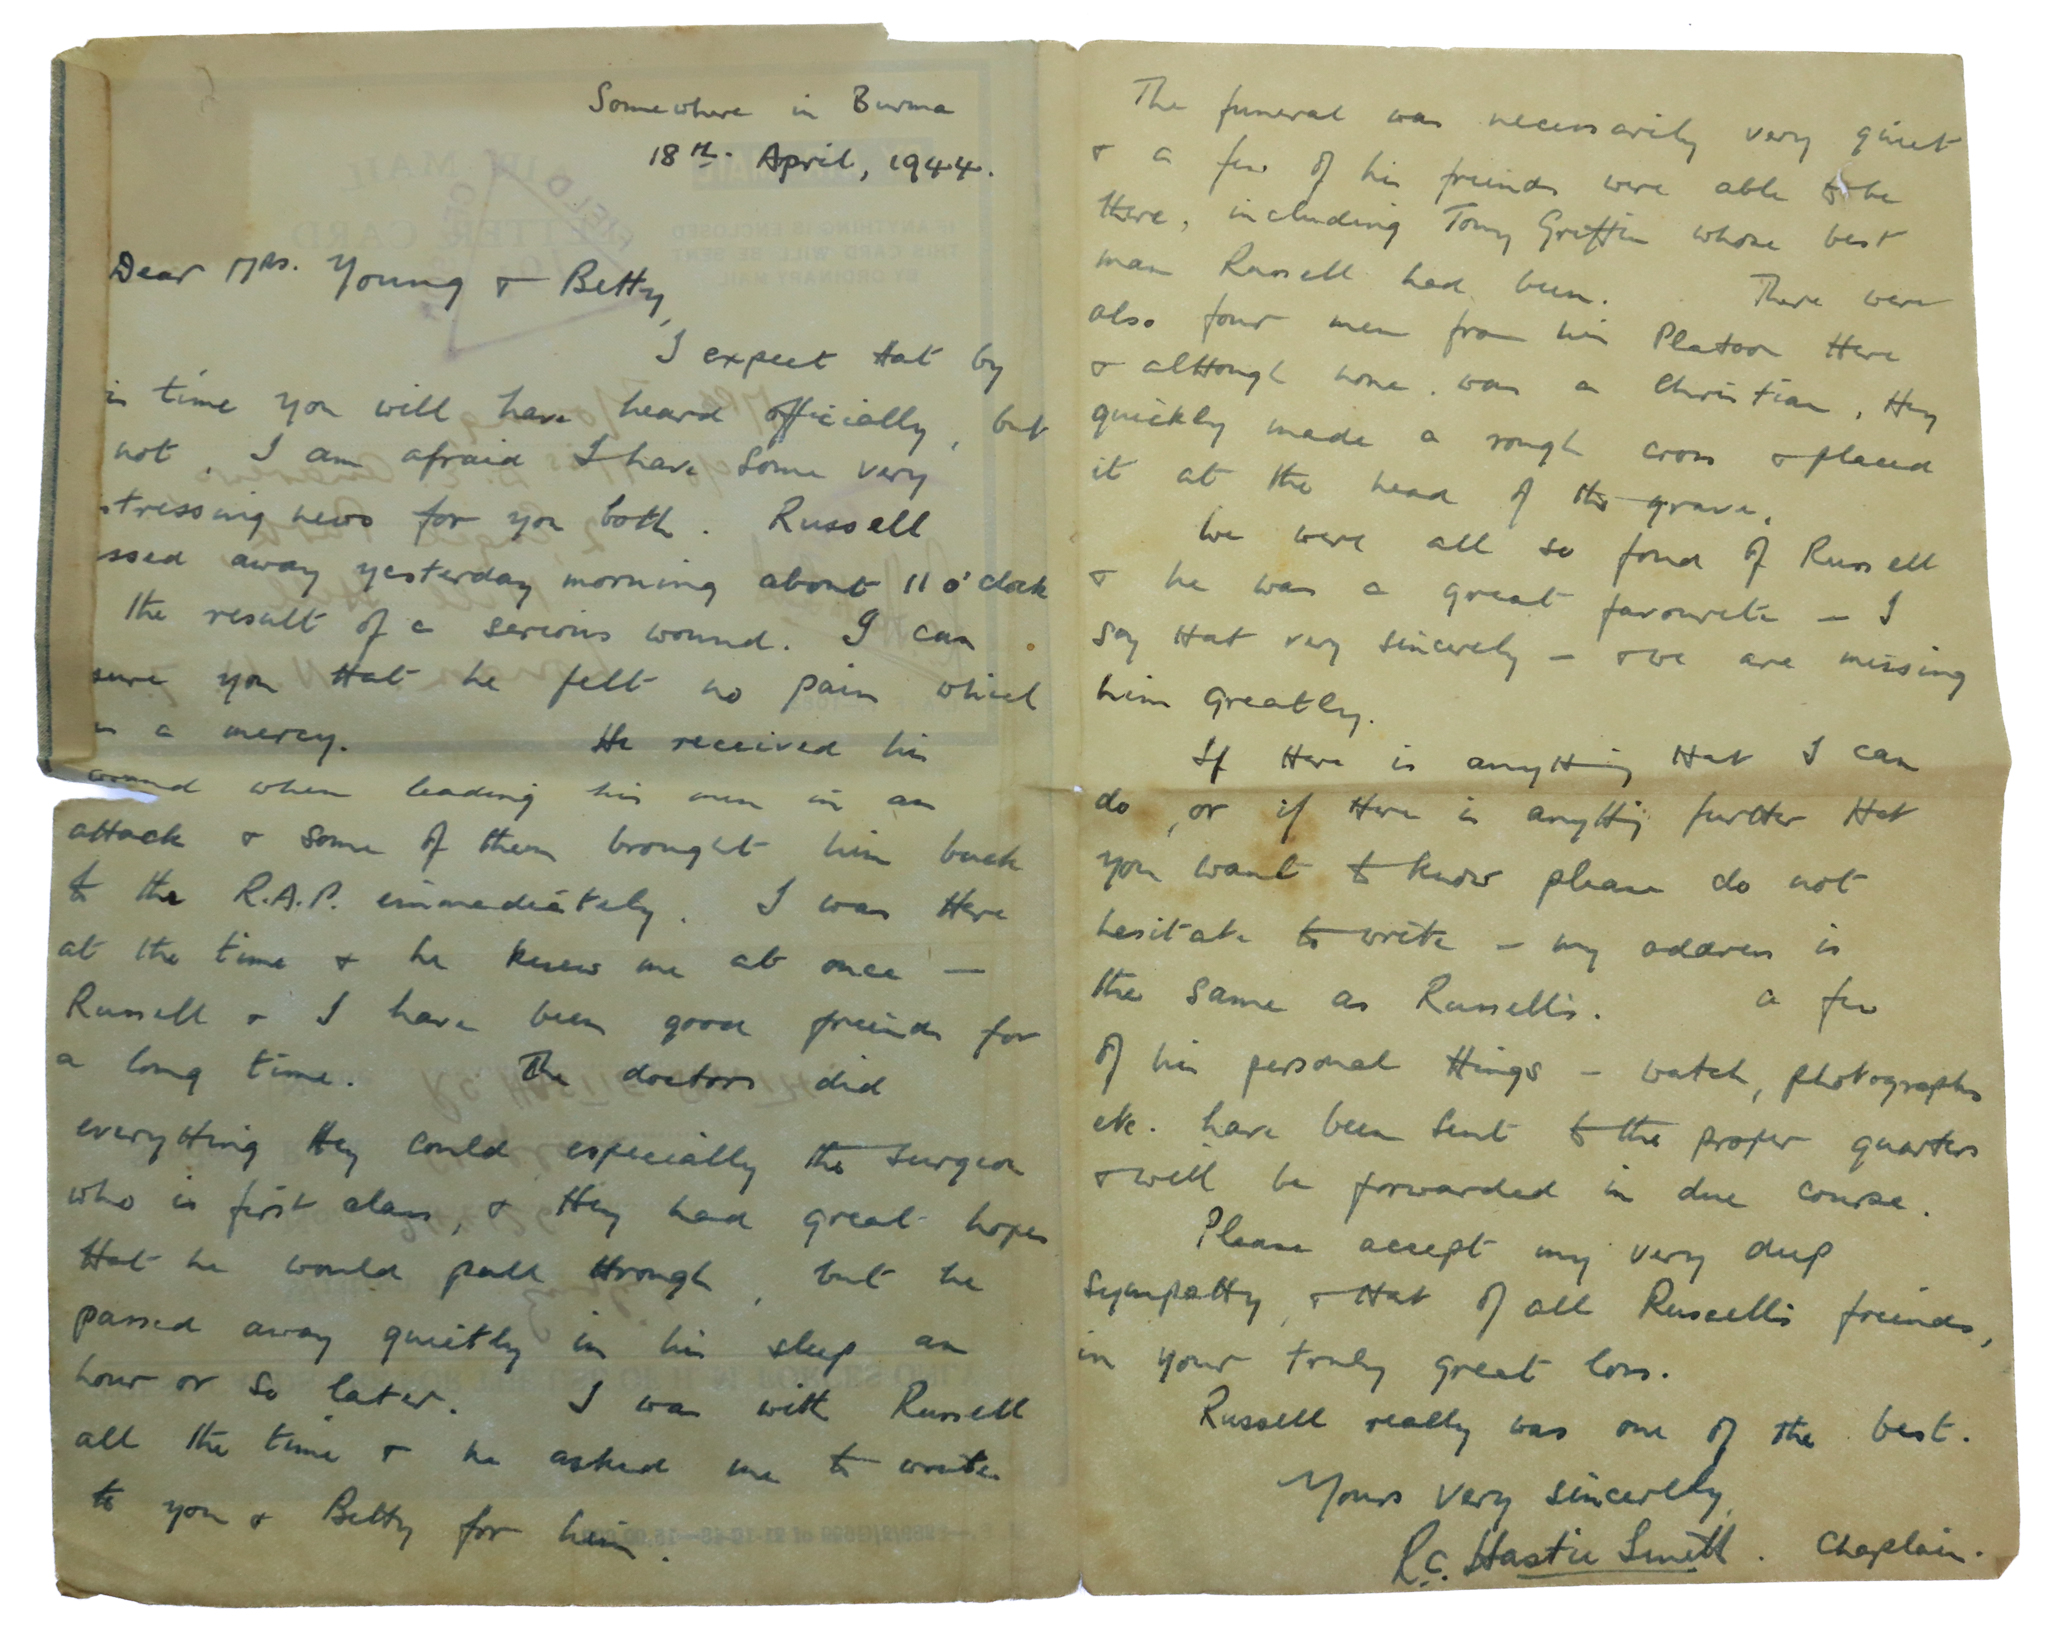 Somewhere in Burma
18th. April, 1944.
Dear Mrs. Young & Betty,
I expect that by
is time you will have heard officially, but
not, I am afraid I have some very
stressing news for you both. Russell
ssed away yesterday morning about 11 o'clock
the result of a serious wound. I can
sure you that he felt no pain which
s a mercy. He received his
wound when leading his men in an
attack & some of them brought him back
to the R.A.P. immediately. I was there
at the time & he knew me at once —
Russell & I have been good freinds for
a long time. The doctors did
everything they could especially the surgeon
who is first class, & they had great hopes
that he would pull through, but he
passed away quietly in his sleep an
hour or so later. I was with Russell
all the time & he asked me to write
to you & Betty for him.
The funeral was necessarily very quiet
& a few of his freinds were able to be
there, including Tony Griffin whose best
man Russell had been. There were
also four men from his Platoon there
& although none was a Christian, they
quickly made a rough cross & placed
it at the head of the grave.
We were all so fond of Russell
& he was a great favourite — I
say that very sincerely — & we are missing
him greatly.
If there is anything that I can
do, or if there is anything further that
you want to know please do not
hesitate to write — my address is
the same as Russell's. a few
of his personal things — watch, photographs
etc. have been sent to the proper quarters
& will be forwarded in due course.
Please accept my very deep
sympathy, & that of all Russell's freinds,
in your truly great loss.
Russell really was one of the best.
Yours very sincerely,
R.C. Hastie Smith. Chaplain.
AIR MAIL
LETTER CARD
IF ANYTHING IS ENCLOSED
THIS CARD WILL BE SENT
BY ORDINARY MAIL